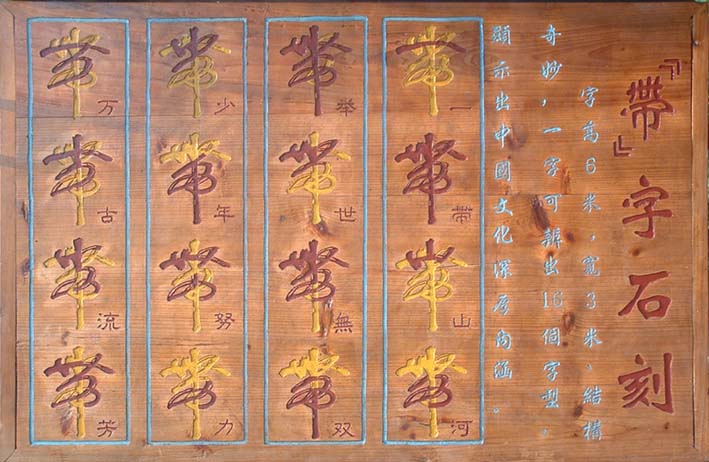 『帶』字石刻
字高6米，寬3米、結構
奇妙，一字可辨出16個字型，
顯示出中國文化深厚内涵。
一帶山河
举世無双
少年努力
万古流芳